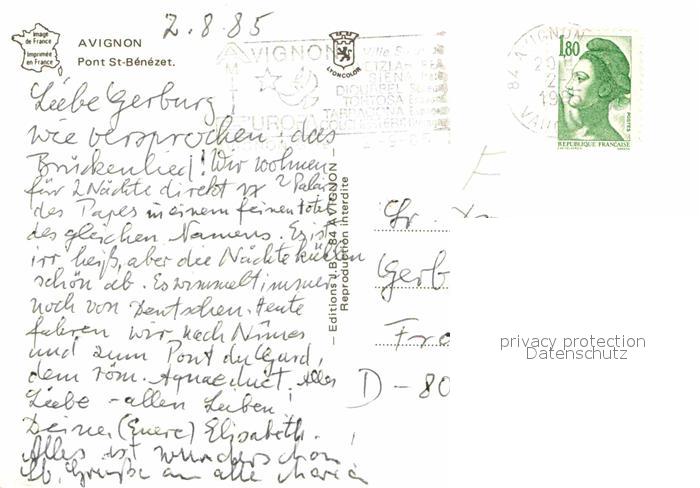 2.8.85
Image de France
Imprimée en France
AVIGNON
Pont St-Bénézet.
LYONCOLOR
AVIGNON Ville
WETZLAR
SIENA
DIOURBEL
TORTOSA
84 AVIGNON
20 H
1,80
POSTES
REPUBLIQUE FRANCAISE
Liebe Gerburg
wie versprochen: das
Brückenlied! Wir wohnen
für 2 Nächte direkt Palais
des Papes in einem feinen Hotel
des gleichen Namens. Es ist
irr heiß, aber die Nächte kühlen
schön ab. Es wimmelt immer
noch von Deutschen. Heute
fahren wir nach Nîmes
und zum Pont du Gard,
dem röm. Aquaeduct. Alles
Liebe - allen Lieben!
Deine (Euere) Elisabeth.
Alles ist wunderschön
Lb. Grüße an alle Maria
— Editions J.B. - 84 AVIGNON —
Reproduction interdite
Gerb
D - 80
privacy protection
Datenschutz